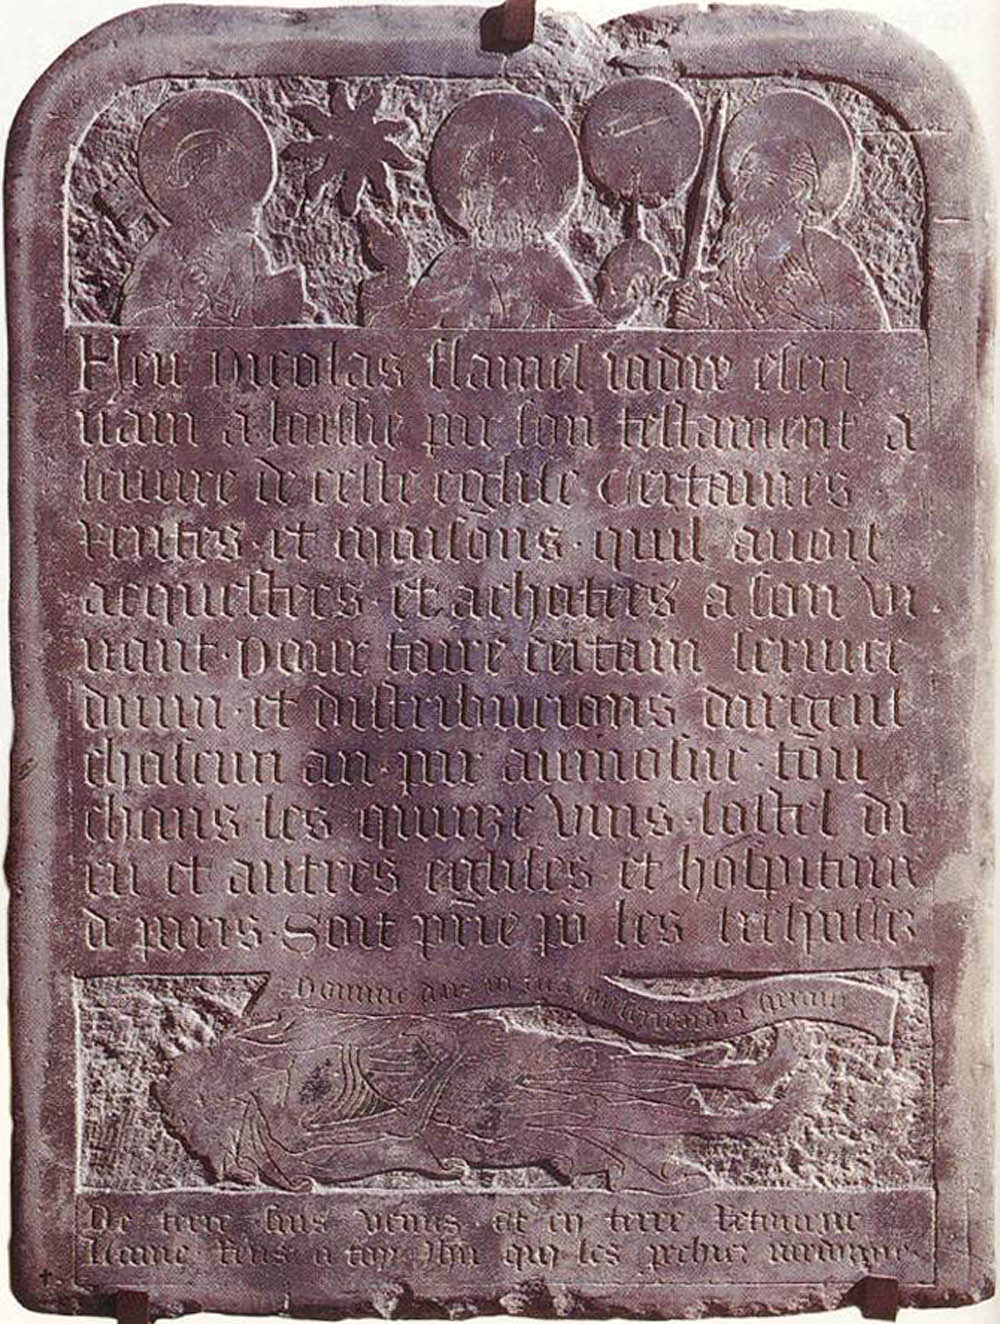 Feu nicolas flamel iadix escri
uain a laissie par son testament a
leuure de ceste eglise Certaines
rentes · et maisons · quil auoit
acquestees · et achatees a son vi
uant · Pour faire certain seruice
diuin · et distribucions dargent
chascun an · par aumosne · tou
chans · les quinze vins · lostel di
eu et autres eglises · et hospitaux
de paris · Soit prie po les trespassez
Domine deus in tua misericordia speraui
De terre suis venus et en terre Retourne
Lame Rens a toy Jhu qui les pechiez pardonne